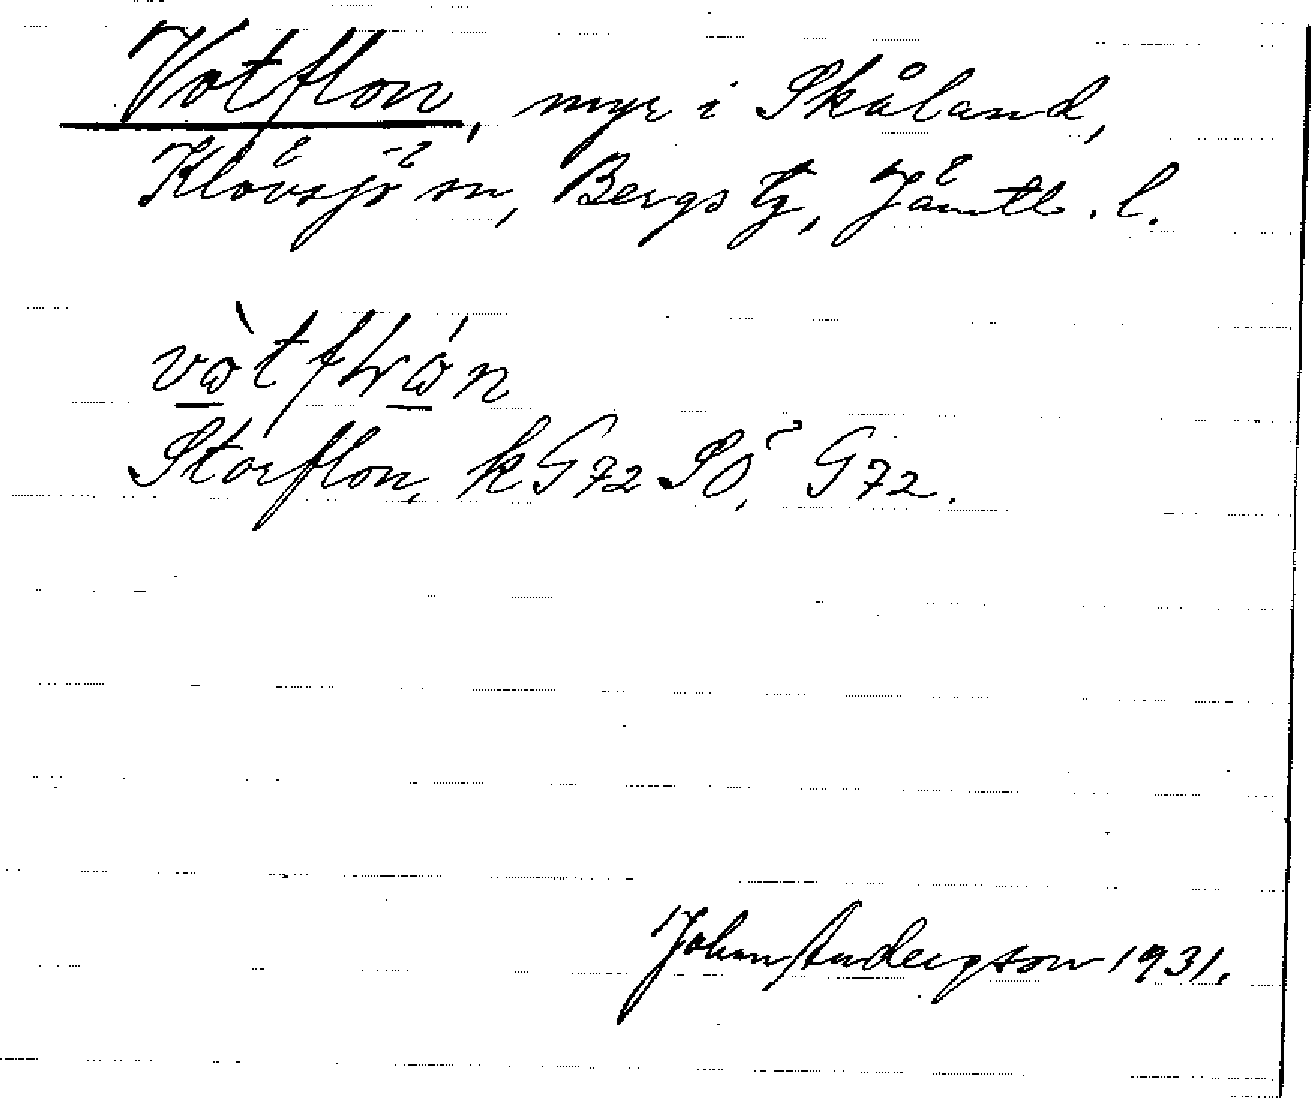 Votflon, myr i Skåland,
Klövsjö sn, Bergs tg, Jämtl. l.
Storflon, k G72 SÖ, G72.
Johan Andersson 1931.